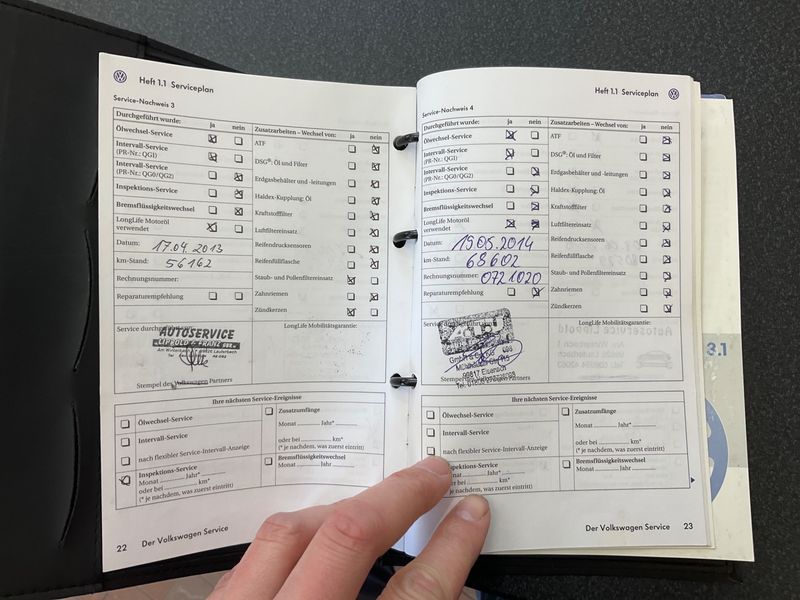 Heft 1.1 Serviceplan
Service-Nachweis 3
Durchgeführt wurde: ja nein
Ölwechsel-Service
Intervall-Service
(PR-Nr.: QG1)
Intervall-Service
(PR-Nr.: QG0/QG2)
Inspektions-Service
Bremsflüssigkeitswechsel
LongLife Motoröl
verwendet
Datum: 17.04.2013
km-Stand: 56162
Rechnungsnummer:
Reparaturempfehlung
Zusatzarbeiten – Wechsel von: ja nein
ATF
DSG®: Öl und Filter
Erdgasbehälter und -leitungen
Haldex-Kupplung: Öl
Kraftstofffilter
Luftfiltereinsatz
Reifendrucksensoren
Reifenfüllflasche
Staub- und Pollenfiltereinsatz
Zahnriemen
Zündkerzen
Service durchgeführt
AUTOSERVICE
LIPPOLD & FRANZ GbR
Stempel des Volkswagen Partners
LongLife Mobilitätsgarantie:
Ihre nächsten Service-Ereignisse
Ölwechsel-Service
Intervall-Service
nach flexibler Service-Intervall-Anzeige
Inspektions-Service
Monat Jahr*
oder bei km*
(* je nachdem, was zuerst eintritt)
Zusatzumfänge
Monat Jahr*
oder bei km*
(* je nachdem, was zuerst eintritt)
Bremsflüssigkeitswechsel
Monat Jahr
22 Der Volkswagen Service
Heft 1.1 Serviceplan
Service-Nachweis 4
Durchgeführt wurde: ja nein
Ölwechsel-Service
Intervall-Service
(PR-Nr.: QG1)
Intervall-Service
(PR-Nr.: QG0/QG2)
Inspektions-Service
Bremsflüssigkeitswechsel
LongLife Motoröl
verwendet
Datum: 19.05.2014
km-Stand: 68602
Rechnungsnummer: 0721020
Reparaturempfehlung
Zusatzarbeiten – Wechsel von: ja nein
ATF
DSG®: Öl und Filter
Erdgasbehälter und -leitungen
Haldex-Kupplung: Öl
Kraftstofffilter
Luftfiltereinsatz
Reifendrucksensoren
Reifenfüllflasche
Staub- und Pollenfiltereinsatz
Zahnriemen
Zündkerzen
Service
GmbH & Co. KG
99817 Eisenach
Stempel
LongLife Mobilitätsgarantie:
Ihre nächsten Service-Ereignisse
Ölwechsel-Service
Intervall-Service
nach flexibler Service-Intervall-Anzeige
Inspektions-Service
Monat Jahr*
oder bei km*
(* je nachdem, was zuerst eintritt)
Zusatzumfänge
Monat Jahr*
oder bei km*
(* je nachdem, was zuerst eintritt)
Bremsflüssigkeitswechsel
Monat Jahr
Der Volkswagen Service 23
3.1